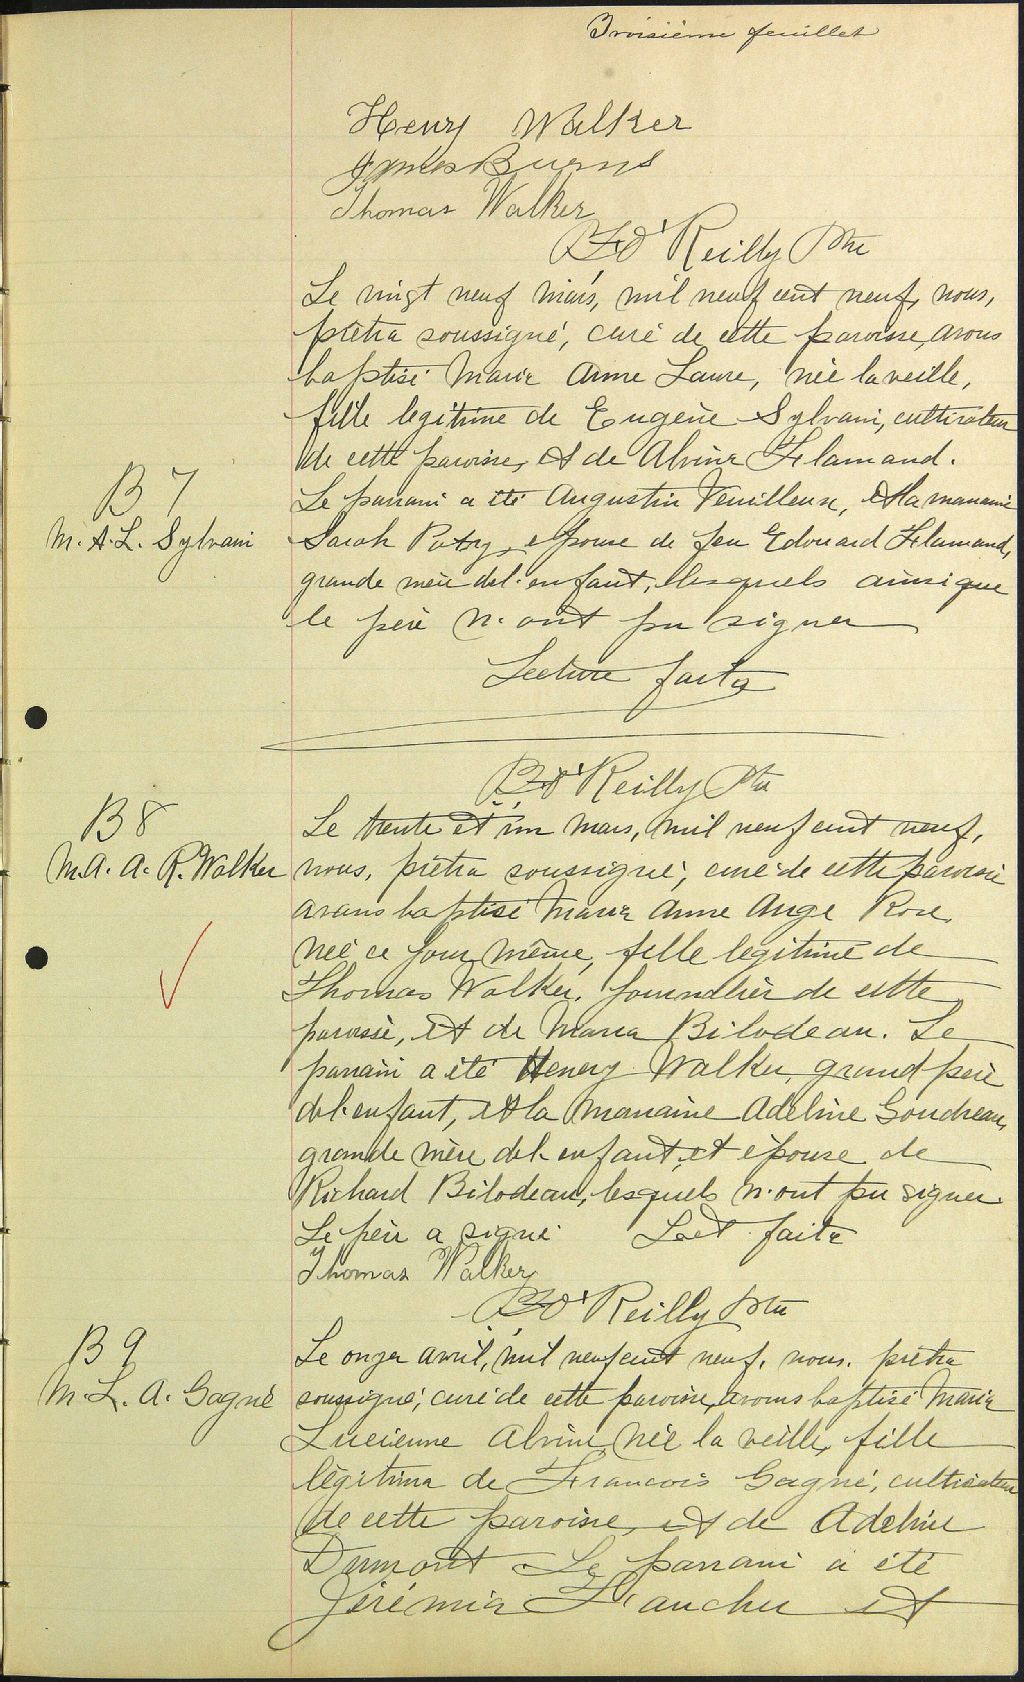 Troisième feuillet
Henry Walker
James Burns
Thomas Walker
O'Reilly Ptre
Le vingt neuf mars, mil neuf cent neuf, nous,
prêtre soussigné, curé de cette paroisse, avons
baptisé Marie Anne Laure, née la veille,
fille legitime de Eugène Sylvain, cultivateur
de cette paroisse, et de Alvine Flamand.
B 7
M. A. L. Sylvain
Le parrain a été Augustin Veuilleux, et la marraine
Sarah Patry, épouse de feu Edouard Flamand,
grande mère de l'enfant, lesquels ainsi que
le père n'ont pu signer
Lecture faite
O'Reilly Ptre
B 8
M. A. A. R. Walker
Le trente et un mars, mil neuf cent neuf,
nous, prêtre soussigné, curé de cette paroisse
avons baptisé Marie Anne Ange Rose
née ce jour même, fille legitime de
Thomas Walker, journalier de cette
paroisse, et de Maria Bilodeau. Le
parrain a été Henery Walker, grand père
de l'enfant, et la marraine Adeline Goudreau,
grande mère de l'enfant et épouse de
Richard Bilodeau, lesquels n'ont pu signer.
Le père a signé Lect faite
Thomas Walker
O'Reilly Ptre
B 9
M. L. A. Gagné
Le onze avril, mil neuf cent neuf, nous, prêtre
soussigné, curé de cette paroisse, avons baptisé Marie
Lucienne Alvine, née la veille, fille
légitime de Francois Gagné, cultivateur
de cette paroisse, et de Adeline
Dumont. Le parrain a été
Jérémie Faucher et